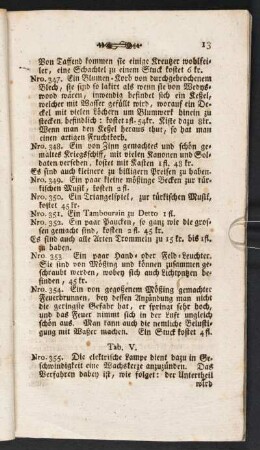 13
Von Taffend kommen sie einige Kreutzer wohlfei-
ler, eine Schachtel zu einem Stuck kostet 6 kr.
Nro. 347. Ein Blumen-Korb von durchgebrochenem
Blech, sie sind so lakirt als wenn sie von
wood wären, inwendig befindet sich ein Keßel,
welcher mit Wasser gefüllt wird, worauf ein De-
ckel mit vielen Löchern um Blumwerk hinein zu
stecken befindlich: kostet 1fl. 54kr. Kiste dazu 8kr.
Wenn man den Keßel heraus thut, so hat man
einen artigen Fruchtkorb.
Nro. 348. Ein von Zinn gemachtes und schön ge-
maltes Kriegsschiff, mit vielen Kanonen und Sol-
daten versehen, kostet mit Kasten 1 fl. 48 kr.
Es sind auch kleinere zu billigern Preisen zu haben.
Nro. 349. Ein paar kleine mößinge Becken zur tür-
kischen Musik, kosten 2 fl.
Nro. 350. Ein Triangelspiel, zur türkischen Musik,
kostet 45 kr.
Nro. 351. Ein Tambourain zu Detto 1 fl.
Nro. 352. Ein paar Paucken, so ganz wie die gros-
sen gemacht sind, kosten 2 fl. 45 kr.
Es sind auch alle Arten Trommeln zu 15 kr. bis 1fl.
zu haben.
Nro. 353. Ein paar Hand- oder Feld-Leuchter.
Sie sind von Mößing und können zusammen ge-
schraubt werden, wobey sich auch Lichtputzen be-
finden, 45 kr.
Nro. 354. Ein von gegoßenem Mößing gemachter
Feuerbrunnen, bey dessen Anzündung man nicht
die geringste Gefahr hat, er springt sehr hoch,
und das Feuer nimmt sich in der Luft ungleich
schön aus. Man kann auch die nemliche Belusti-
gung mit Waßer machen. Ein Stuck kostet 4 fl.
Tab. V.
Nro. 355. Die elektrische Lampe dient dazu in Ge-
schwindigkeit eine Wachskerze anzuzünden. Das
Verfahren dabey ist, wie folget: der Untertheil
wird